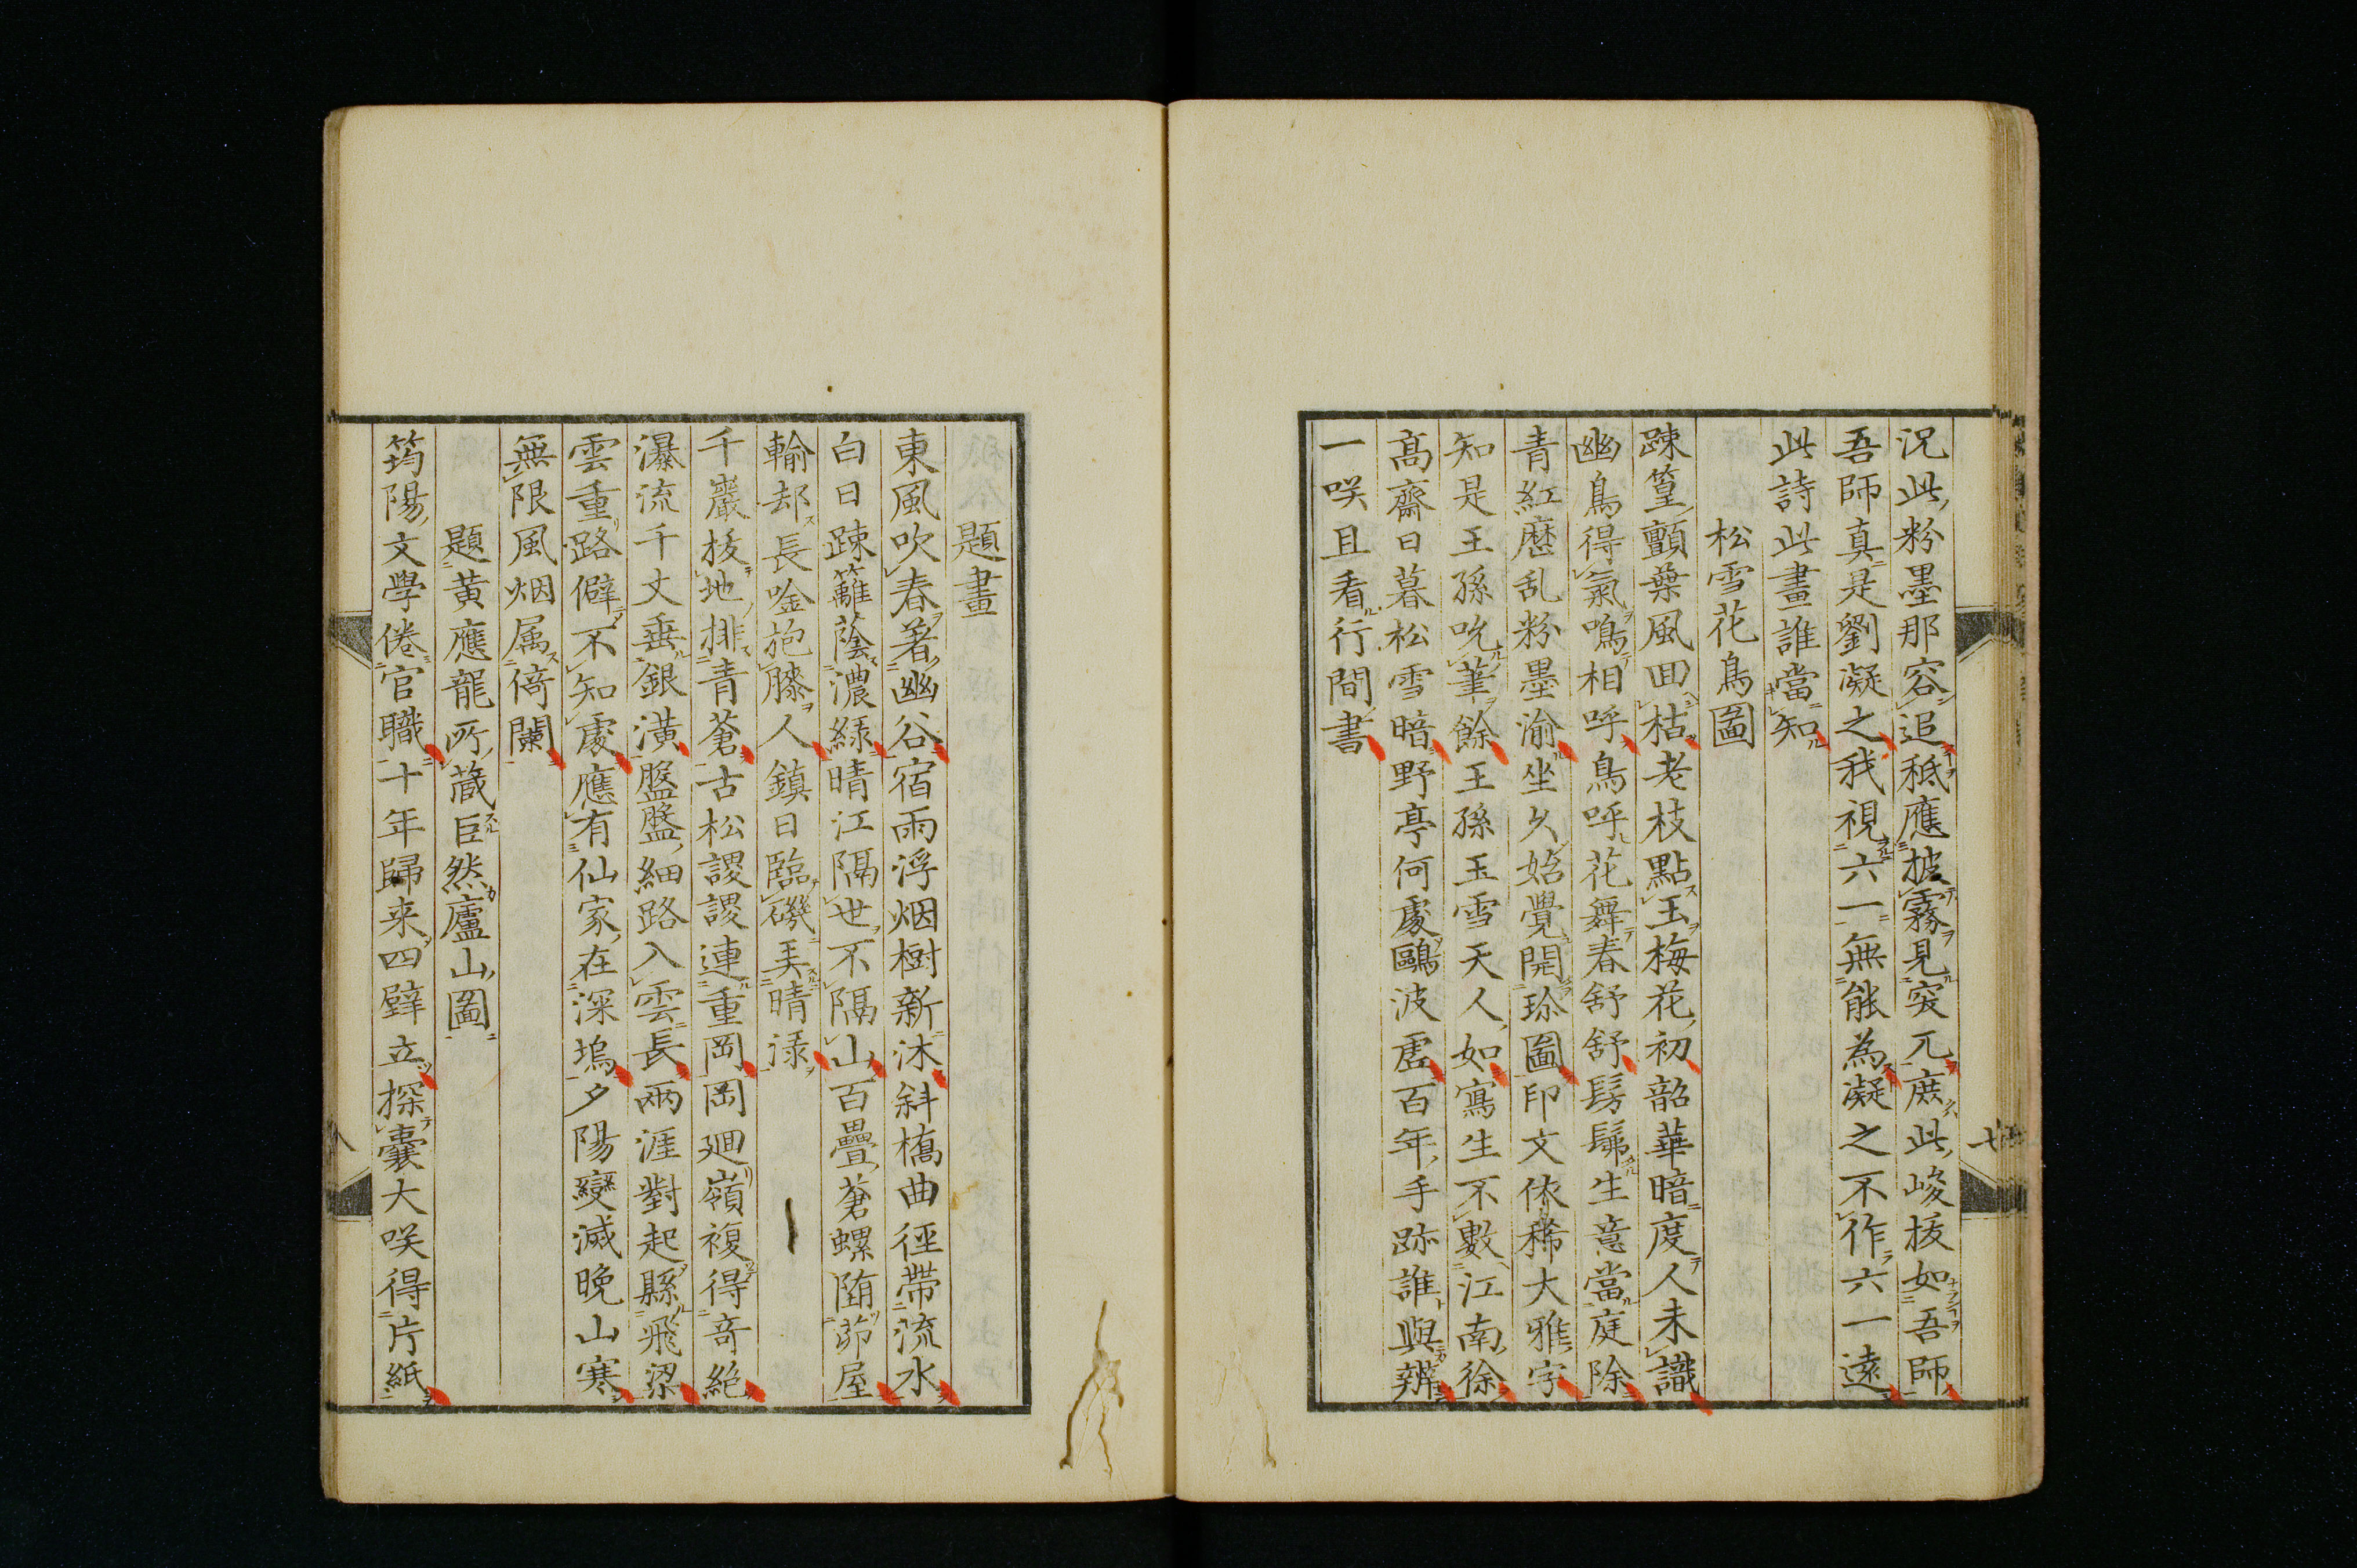 况此粉墨那容追秪應披霧見突兀庶此峻抜如吾師
吾師真是劉凝之我視六一無能為凝之不作六一遠
此詩此畫誰當知
松雪花鳥圖
踈篁顫葉風回枯老枝點玉梅花初韶華暗度人未識
幽鳥得氣鳴相呼鳥呼花舞春舒舒髣髴生意當庭除
青紅磿乱粉墨渝坐久始覺開珎圖印文依稀大雅字
知是王孫吮筆餘王孫玉雪天人如寫生不數江南徐
髙齋日暮松雪暗野亭何處鷗波虚百年手跡誰與辨
一咲且看行間書
七
題畫
東風吹春著幽谷宿雨浮烟樹新沐斜橋曲徑帶流水
白日踈籬蔭濃緑晴江隔世不隔山百疊蒼螺隋茆屋
輸却長唫抱膝人鎮日臨磯弄晴渌
千巖抜地排青蒼古松謖謖連重岡岡廻嶺複得竒絶
瀑流千丈垂銀潢盤盤細路入雲長兩涯對起縣飛梁
雲重路僻不知處應有仙家在深塢夕陽變滅晩山寒
無限風烟属倚闌
題黄應龍所蔵巨然廬山圖
筠陽文學倦官職十年歸来四壁立探囊大咲得片紙
八